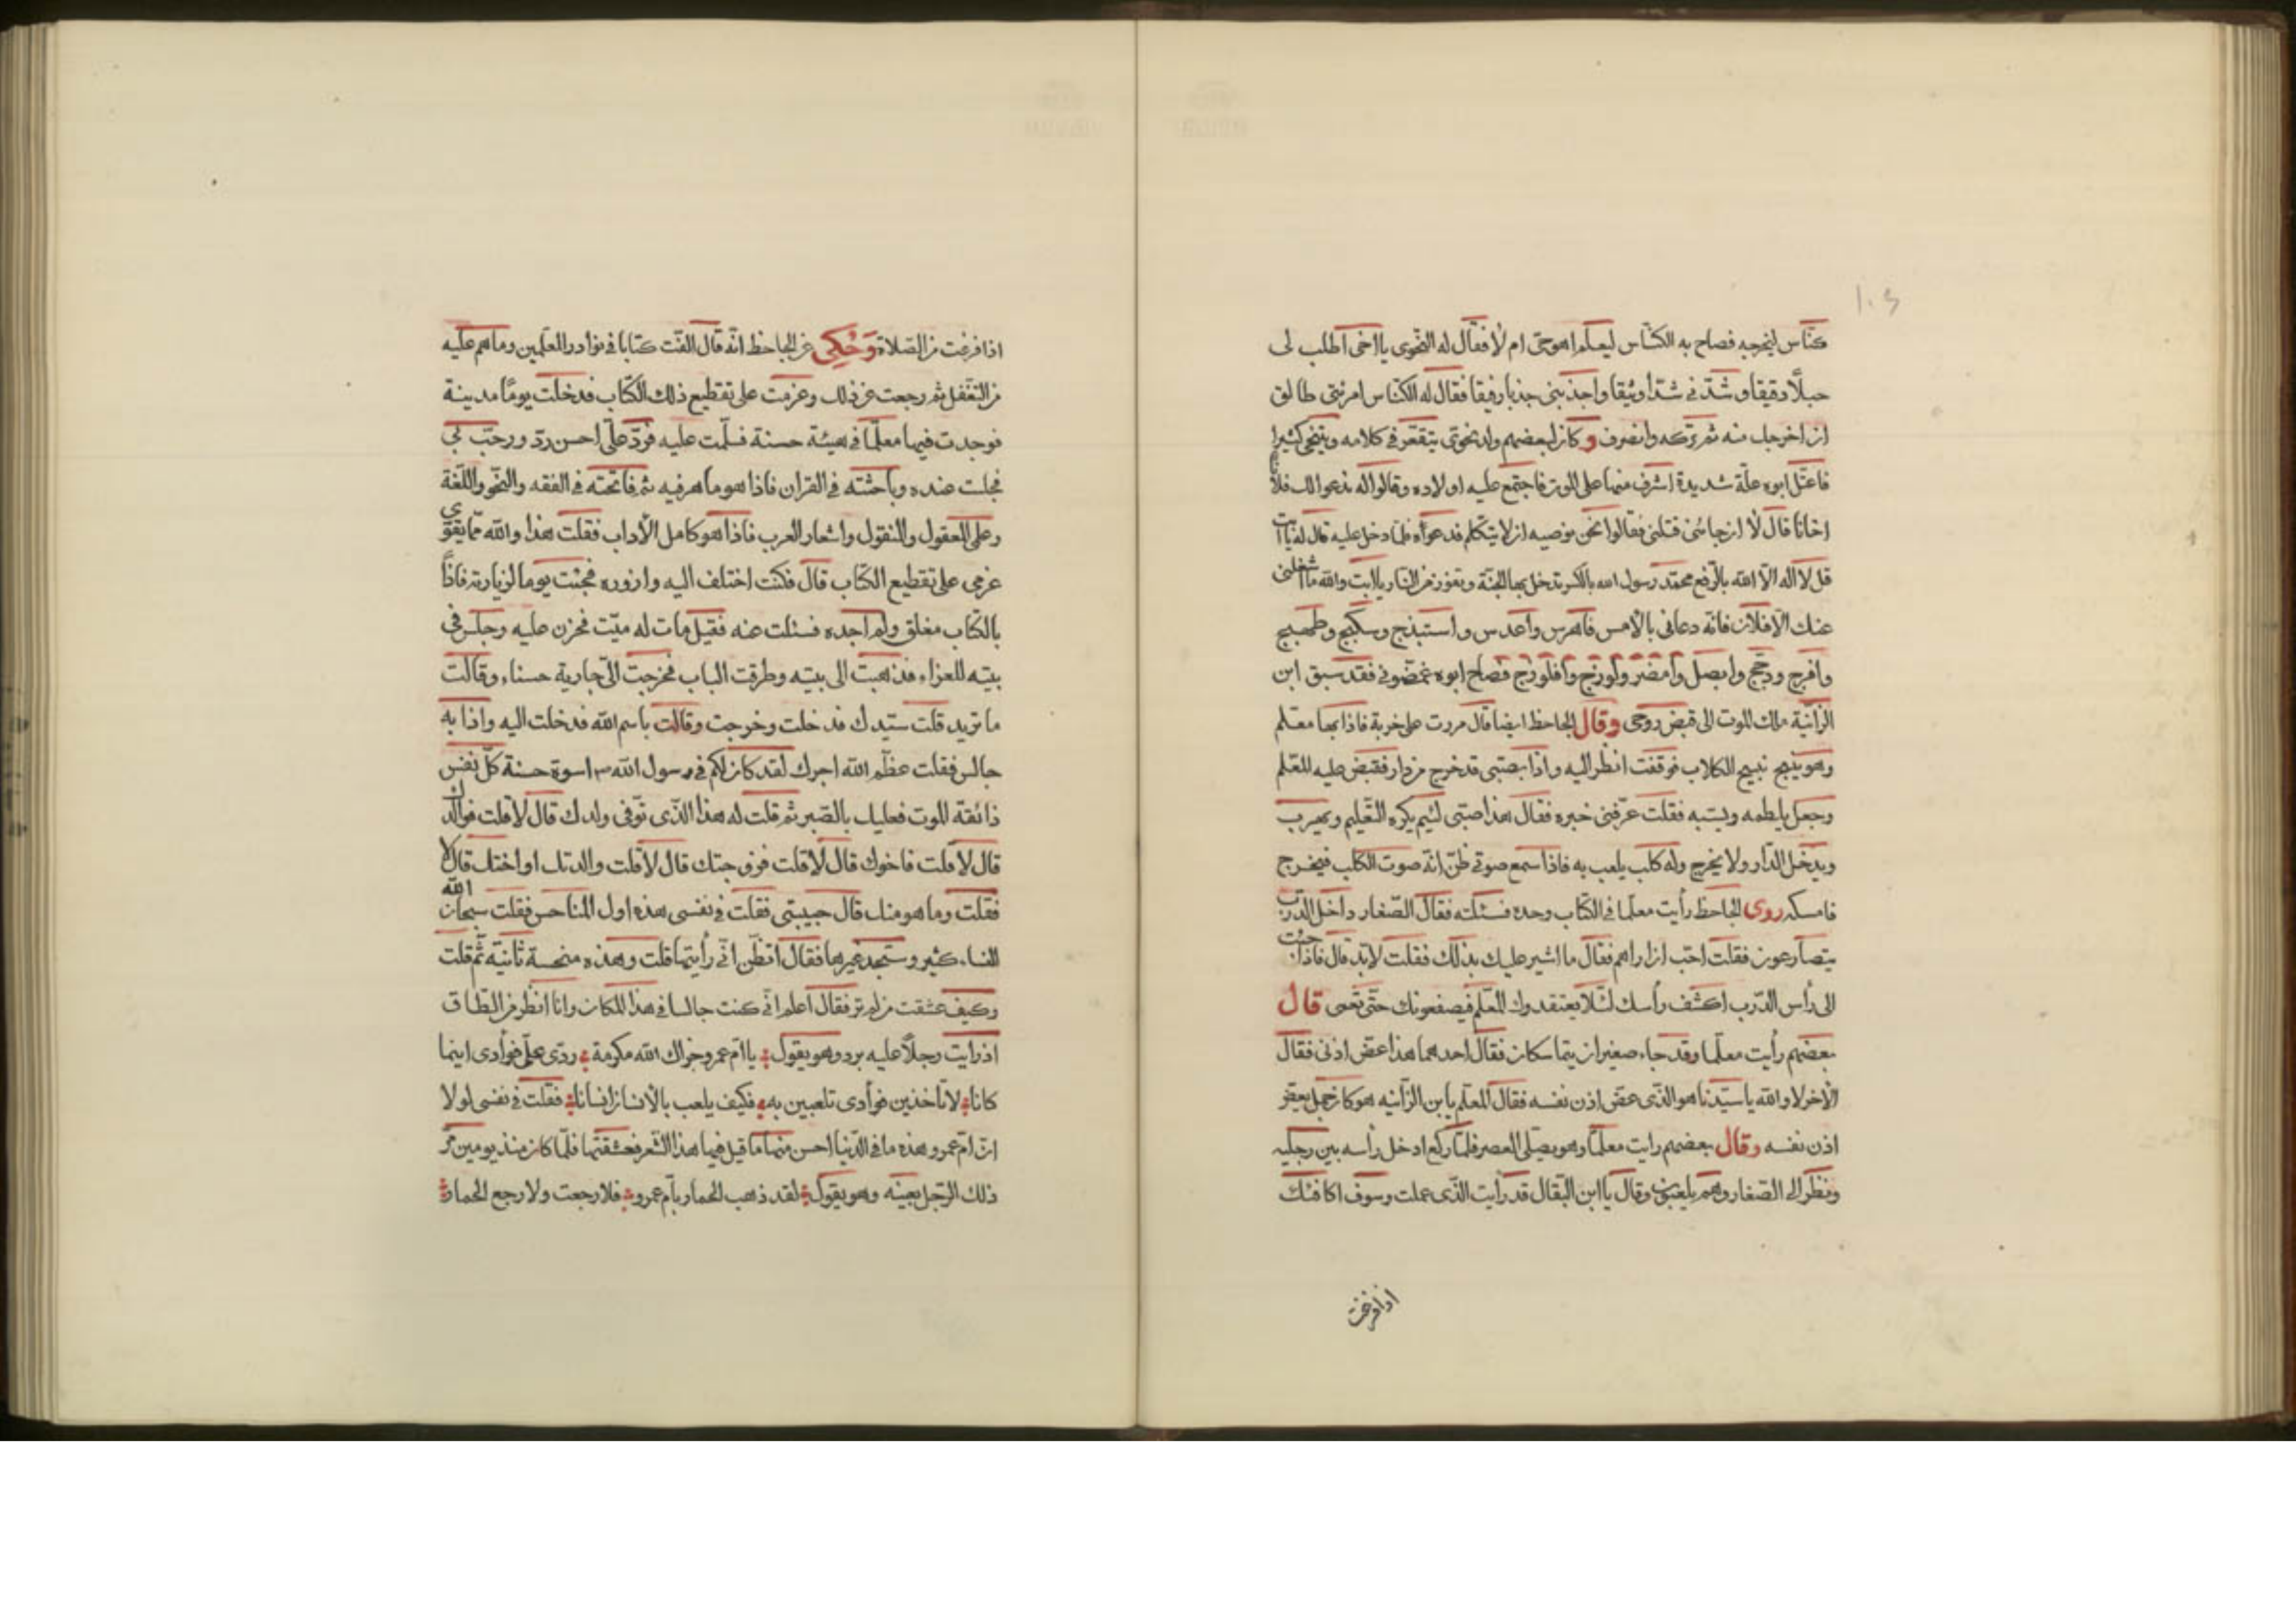 ١٠٤
كنّاس ليخرجه فصاح به الكنّاس ليعلم اهو حىّ ام لا فقال له النحوى يا اخى اطلب لى
حبلًا دقيقا وشدّنى شدّا وثيقا واجذبنى جذبا رفيقا فقال له الكنّاس امرئتى طالق
ان اخرجك منه ثم تركه وانصرف و كان لبعضهم ولد نحوىّ يتقعّر فى كلامه ويتنحى كثيرا
فاعتلّ ابوه علّة شديدة اشرف منها على الموت فاجتمع عليه اولاده وقالوا له ندعوا لك فلانا
اخانا قال لا ان جائنى قتلنى فقالوا نحن نوصيه ان لا يتكلم فدعواه فلما دخل عليه قال له يا ابت
قل لا اله الّا الله بالرّفع محمّد رسول الله بالكسر تدخل بها الجنّة وتفوز من النار يا ابت والله ما اشغلنى
عنك الّا فلان فانّه دعانى بالامس فاهرس واعدس واستبذج وسكبج وطهبج
وافرج ودجّج وابصل وامضر ولوزنج وافلوزج فصاح ابوه غمّضونى فقد سبق ابن
الزّانية ملك الموت الى قبض روحى وقال الجاحظ ايضا قال مررت على خربة فاذا بها معلم
وهو ينبح نبيح الكلاب فوقفت انظر اليه واذا بصبّى قد خرج من دار فقبض عليه المعلم
وجعل يلطمه ويسبّه فقلت عرّفنى خبره فقال هذا صبّى لئيم يكره التّعليم ويهرب
ويدخل الدّار ولا يخرج وله كلب يلعب به فاذا سمع صوتى ظنّ انّه صوت الكلب فيخرج
فامسكه روى الجاحظ رأيت معلّما فى الكتّاب وحده فسئلته فقال الصّغار داخل الدّرب
يتصارعون فقلت احبّ ان اراهم فقال ما اشير عليك بذلك فقلت لابدّ قال فاذا جئت
الى رأس الدّرب اكشف رأسك لئلّا يعتقدوك المعلّم فيصفعونك حتّى تعمى قال
بعضهم رأيت معلّما وقد جاء صغيران يتماسكان فقال احدهما هذا عضّ اذنى فقال
الآخر لا والله يا سيّدنا هو الذّى عضّ اذن نفسه فقال المعلّم يا بن الزّانيه هو كان جمل يعضّ
اذن نفسه وقال بعضهم رايت معلّما وهو يصلّى العصر فلمّا ركع ادخل رأسه بين رجليه
ونظر الى الصّغار وهم يلعبون وقال يا ابن البقّال قد رأيت الذّى عملت وسوف اكافئك
اذا فرغت
اذا فرغت من الصّلاة وَحُكِى عن الجاحظ انّه قال الفّت كتابا فى نوادر المعلّمين وما هم عليه
من التغفّل ثم رجعت عن ذلك وعزمت على تقطيع ذلك الكتاب فدخلت يومًا مدينة
فوجدت فيها معلّما فى هيئة حسنة فسلّمت عليه فردّ علىّ احسن ردّ ورحّب بى
فجلست عنده وباحثته فى القران فاذا هو ماهر فيه ثم فاتحته فى الفقه والنحّو واللّغة
وعلم المعقول والمنقول واشعار العرب فاذا هو كامل الآداب فقلت هذا والله ممّا يقوّى
عزمى على تقطيع الكتاب قال فكنت اختلف اليه وازوره فجئت يوما لزيارته فاذًا
بالكتّاب مغلق ولم اجده فسئلت عنه فقيل مات له ميّت فحزن عليه وجلس فى
بيته للعزاء فذهبت الى بيته وطرقت الباب فخرجت الىّ جارية حسناء وقالت
ما تريد قلت سيّدك فدخلت وخرجت وقالت باسم الله فدخلت اليه واذا به
جالس فقلت عظّم الله اجرك لقد كان لكم فى رسول الله ص اسوة حسنة كلّ نفس
ذائقة الموت فعليك بالصّبر ثم قلت له هذا الذّى توّفى ولدك قال لا قلت فوالدك
قال لا قلت فاخوك قال لا قلت فزوجتك قال لا قلت والدتك او اختك قال لا
فقلت وما هو منك قال حبيبتى فقلت فى نفسى هذه اول المناحس فقلت سبحان الله
النساء كثير وستجد غيرها فقال اتظنّ انّى رأيتها قلت وهذه منحسة ثانيّة ثم قلت
وكيف عشقت من لم تر فقال اعلم انّى كنت جالسا فى هذا المكان وانا انظر من الطّاق
اذ رايت رجلًا عليه برد وهو يقول يا امّ عمرو جزاك الله مكرمة ردّى علىّ فوأدى اينما
كانا لا تأخذين فوأدى تلعبين به فكيف يلعب بالانسان انسانا فقلت فى نفسى لولا
انّ امّ عمرو هذه ما فى الدّنيا احسن منها ما قيل فيها هذا الشعر فعشقتها فلمّا كان منذ يومين مرّ
ذلك الرّجل بعينه وهو يقول لقد ذهب الحمار بأمّ عمرو فلا رجعت ولا رجع الحمار